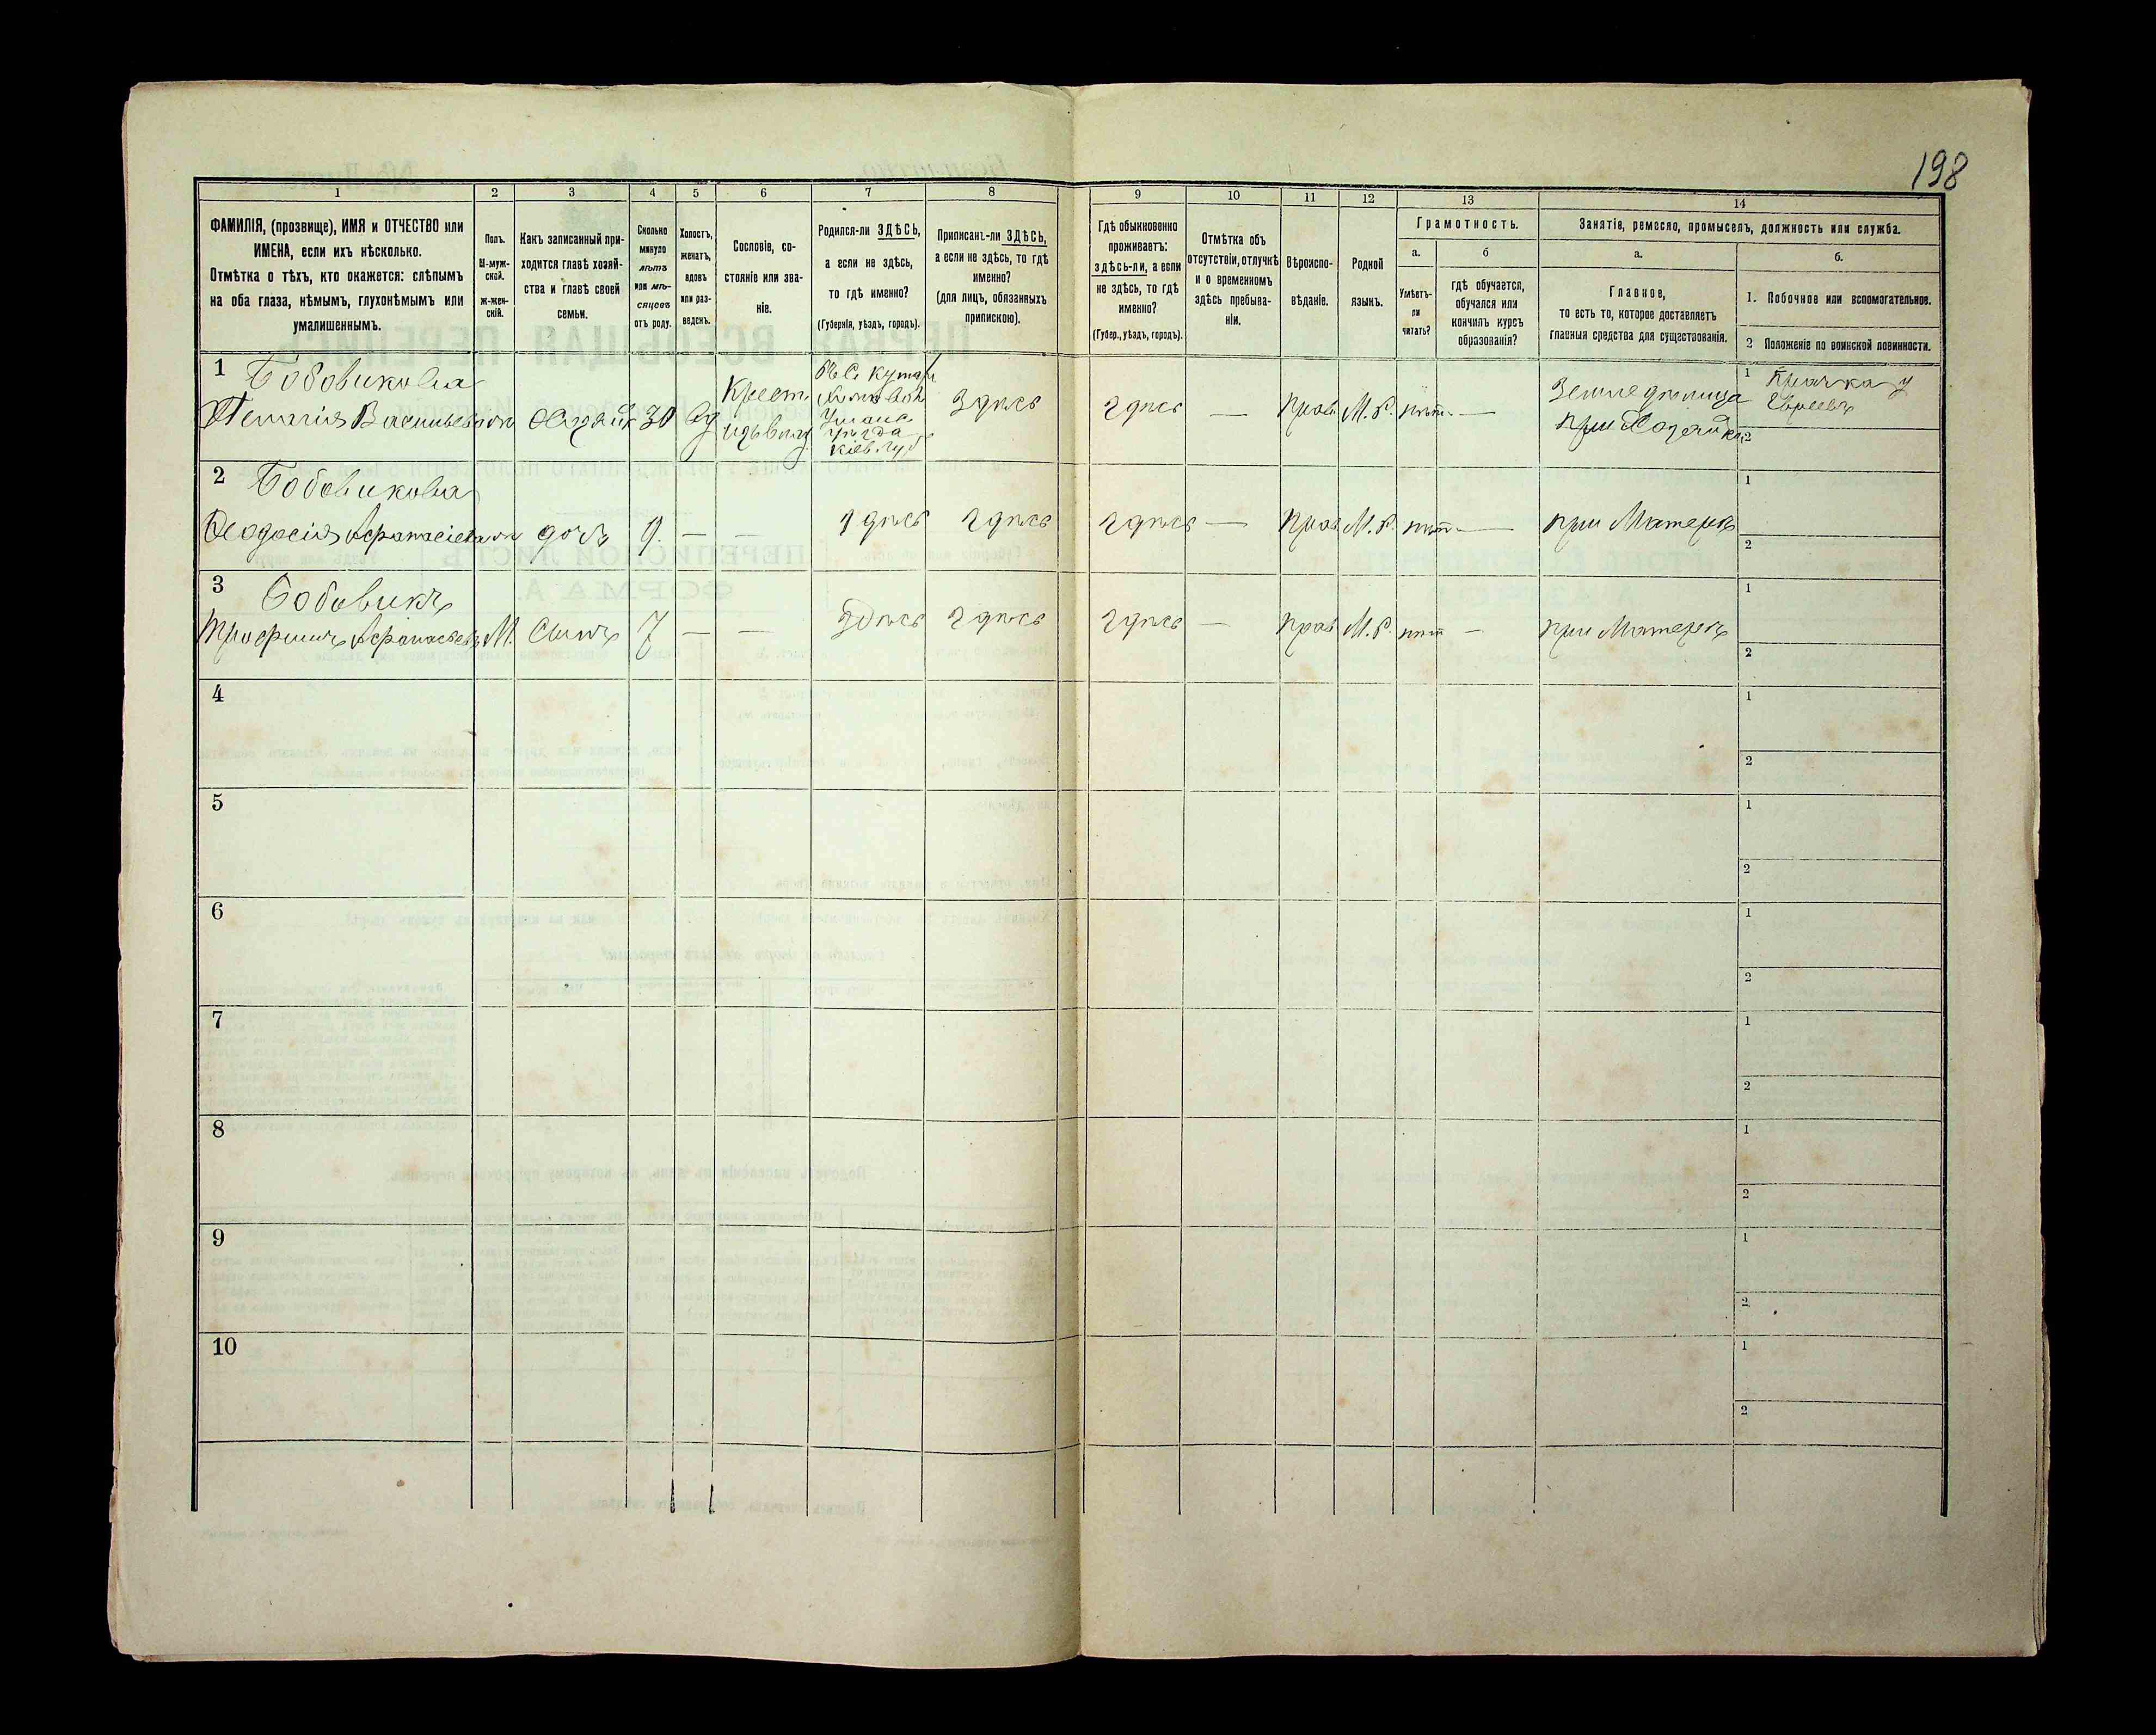 198
1 2 3 4 5 6 7 8 9 10 11 12 13 14
ФАМИЛІЯ, (прозвище), ИМЯ и ОТЧЕСТВО или
ИМЕНА, если ихъ нѣсколько.
Отмѣтка о тѣхъ, кто окажется: слѣпымъ
на оба глаза, нѣмымъ, глухонѣмымъ или
умалишеннымъ.
Полъ.
М-муж-
ской.
Ж-жен-
скій.
Какъ записанный при-
ходится главѣ хозяй-
ства и главѣ своей
семьи.
Сколько
минуло
лѣтъ
или мѣ-
сяцевъ
отъ роду.
Холостъ,
женатъ,
вдовъ
или раз-
веденъ.
Сословіе, со-
стояніе или зва-
ніе.
Родился-ли ЗДѢСЬ,
а если не здѣсь,
то гдѣ именно?
(Губернія, уѣздъ, городъ).
Приписанъ-ли ЗДѢСЬ,
а если не здѣсь, то гдѣ
именно?
(для лицъ, обязанныхъ
припискою).
Гдѣ обыкновенно
проживаетъ:
здѣсь-ли, а если
не здѣсь, то гдѣ
именно?
(Губер., уѣздъ, городъ).
Отмѣтка объ
отсутствіи, отлучкѣ
и о временномъ
здѣсь пребыва-
ніи.
Вѣроиспо-
вѣданіе.
Родной
языкъ.
Грамотность.
а.
Умѣетъ-
ли
читать?
б
гдѣ обучается,
обучался или
кончилъ курсъ
образованія?
Занятіе, ремесло, промыселъ, должность или служба.
а.
Главное,
то есть то, которое доставляетъ
главныя средства для существованія.
б.
1. Побочное или вспомогательное.
2 Положеніе по воинской повинности.
1 Бобовикова
Васильевна 30 Вд
Крест.
Уманс
уѣзда
Кіев. Губ
Здѣсь Здѣсь — Прав М. Р. нѣт —
Земледѣлица
при Хозяйкѣ
1 Прачка у
Евреевъ
2
2 Бобовикова
Ѳеодосія Афанасіевна дочь 9. — — Здѣсь Здѣсь Здѣсь — Прав М. Р. нѣт — при Матерѣ
1
2
3 Бобовикъ
Трофимъ Афанасьевъ М. Сынъ 7 — — Здѣсь Здѣсь Здѣсь — Прав М. Р. нѣт — при Матерѣ
1
2
4
1
2
5
1
2
6
1
2
7
1
2
8
1
2
9
1
2
10
1
2